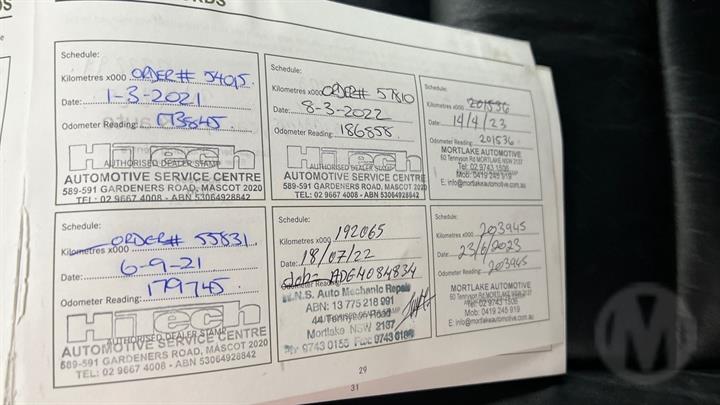 Schedule:
Kilometres x000 ORDER# 54015
Date: 1-3-2021
Odometer Reading: 173845
HiTech
AUTHORISED DEALER STAMP
AUTOMOTIVE SERVICE CENTRE
589-591 GARDENERS ROAD, MASCOT 2020
TEL: 02 9667 4008 - ABN 53064928842
Schedule:
Kilometres x000 ORDER# 57810
Date: 8-3-2022
Odometer Reading: 186858
HiTech
AUTHORISED DEALER STAMP
AUTOMOTIVE SERVICE CENTRE
589-591 GARDENERS ROAD, MASCOT 2020
TEL: 02 9667 4008 - ABN 53064928842
Schedule:
Kilometres x000 201536
Date: 14/4/23
Odometer Reading: 201536
MORTLAKE AUTOMOTIVE
60 Tennyson Rd MORTLAKE NSW 2137
Tel: 02 9743 1506
Mob: 0419 245 919
E: info@mortlakeautomotive.com.au
Schedule:
Kilometres x000 ORDER# 55831
Date: 6-9-21
Odometer Reading: 179745
HiTech
AUTHORISED DEALER STAMP
AUTOMOTIVE SERVICE CENTRE
589-591 GARDENERS ROAD, MASCOT 2020
TEL: 02 9667 4008 - ABN 53064928842
Schedule:
Kilometres x000 192065
Date: 18/07/22
ADG4084834
W.N.S. Auto Mechanic Repair
ABN: 13 775 218 991
44 Tennyson Road
Mortlake NSW 2137
Schedule:
Kilometres x000 203945
Date: 23/6/2023
Odometer Reading: 203945
MORTLAKE AUTOMOTIVE
60 Tennyson Rd MORTLAKE NSW 2137
Tel: 02 9743 1506
Mob: 0419 245 919
E: info@mortlakeautomotive.com.au
29
31
M